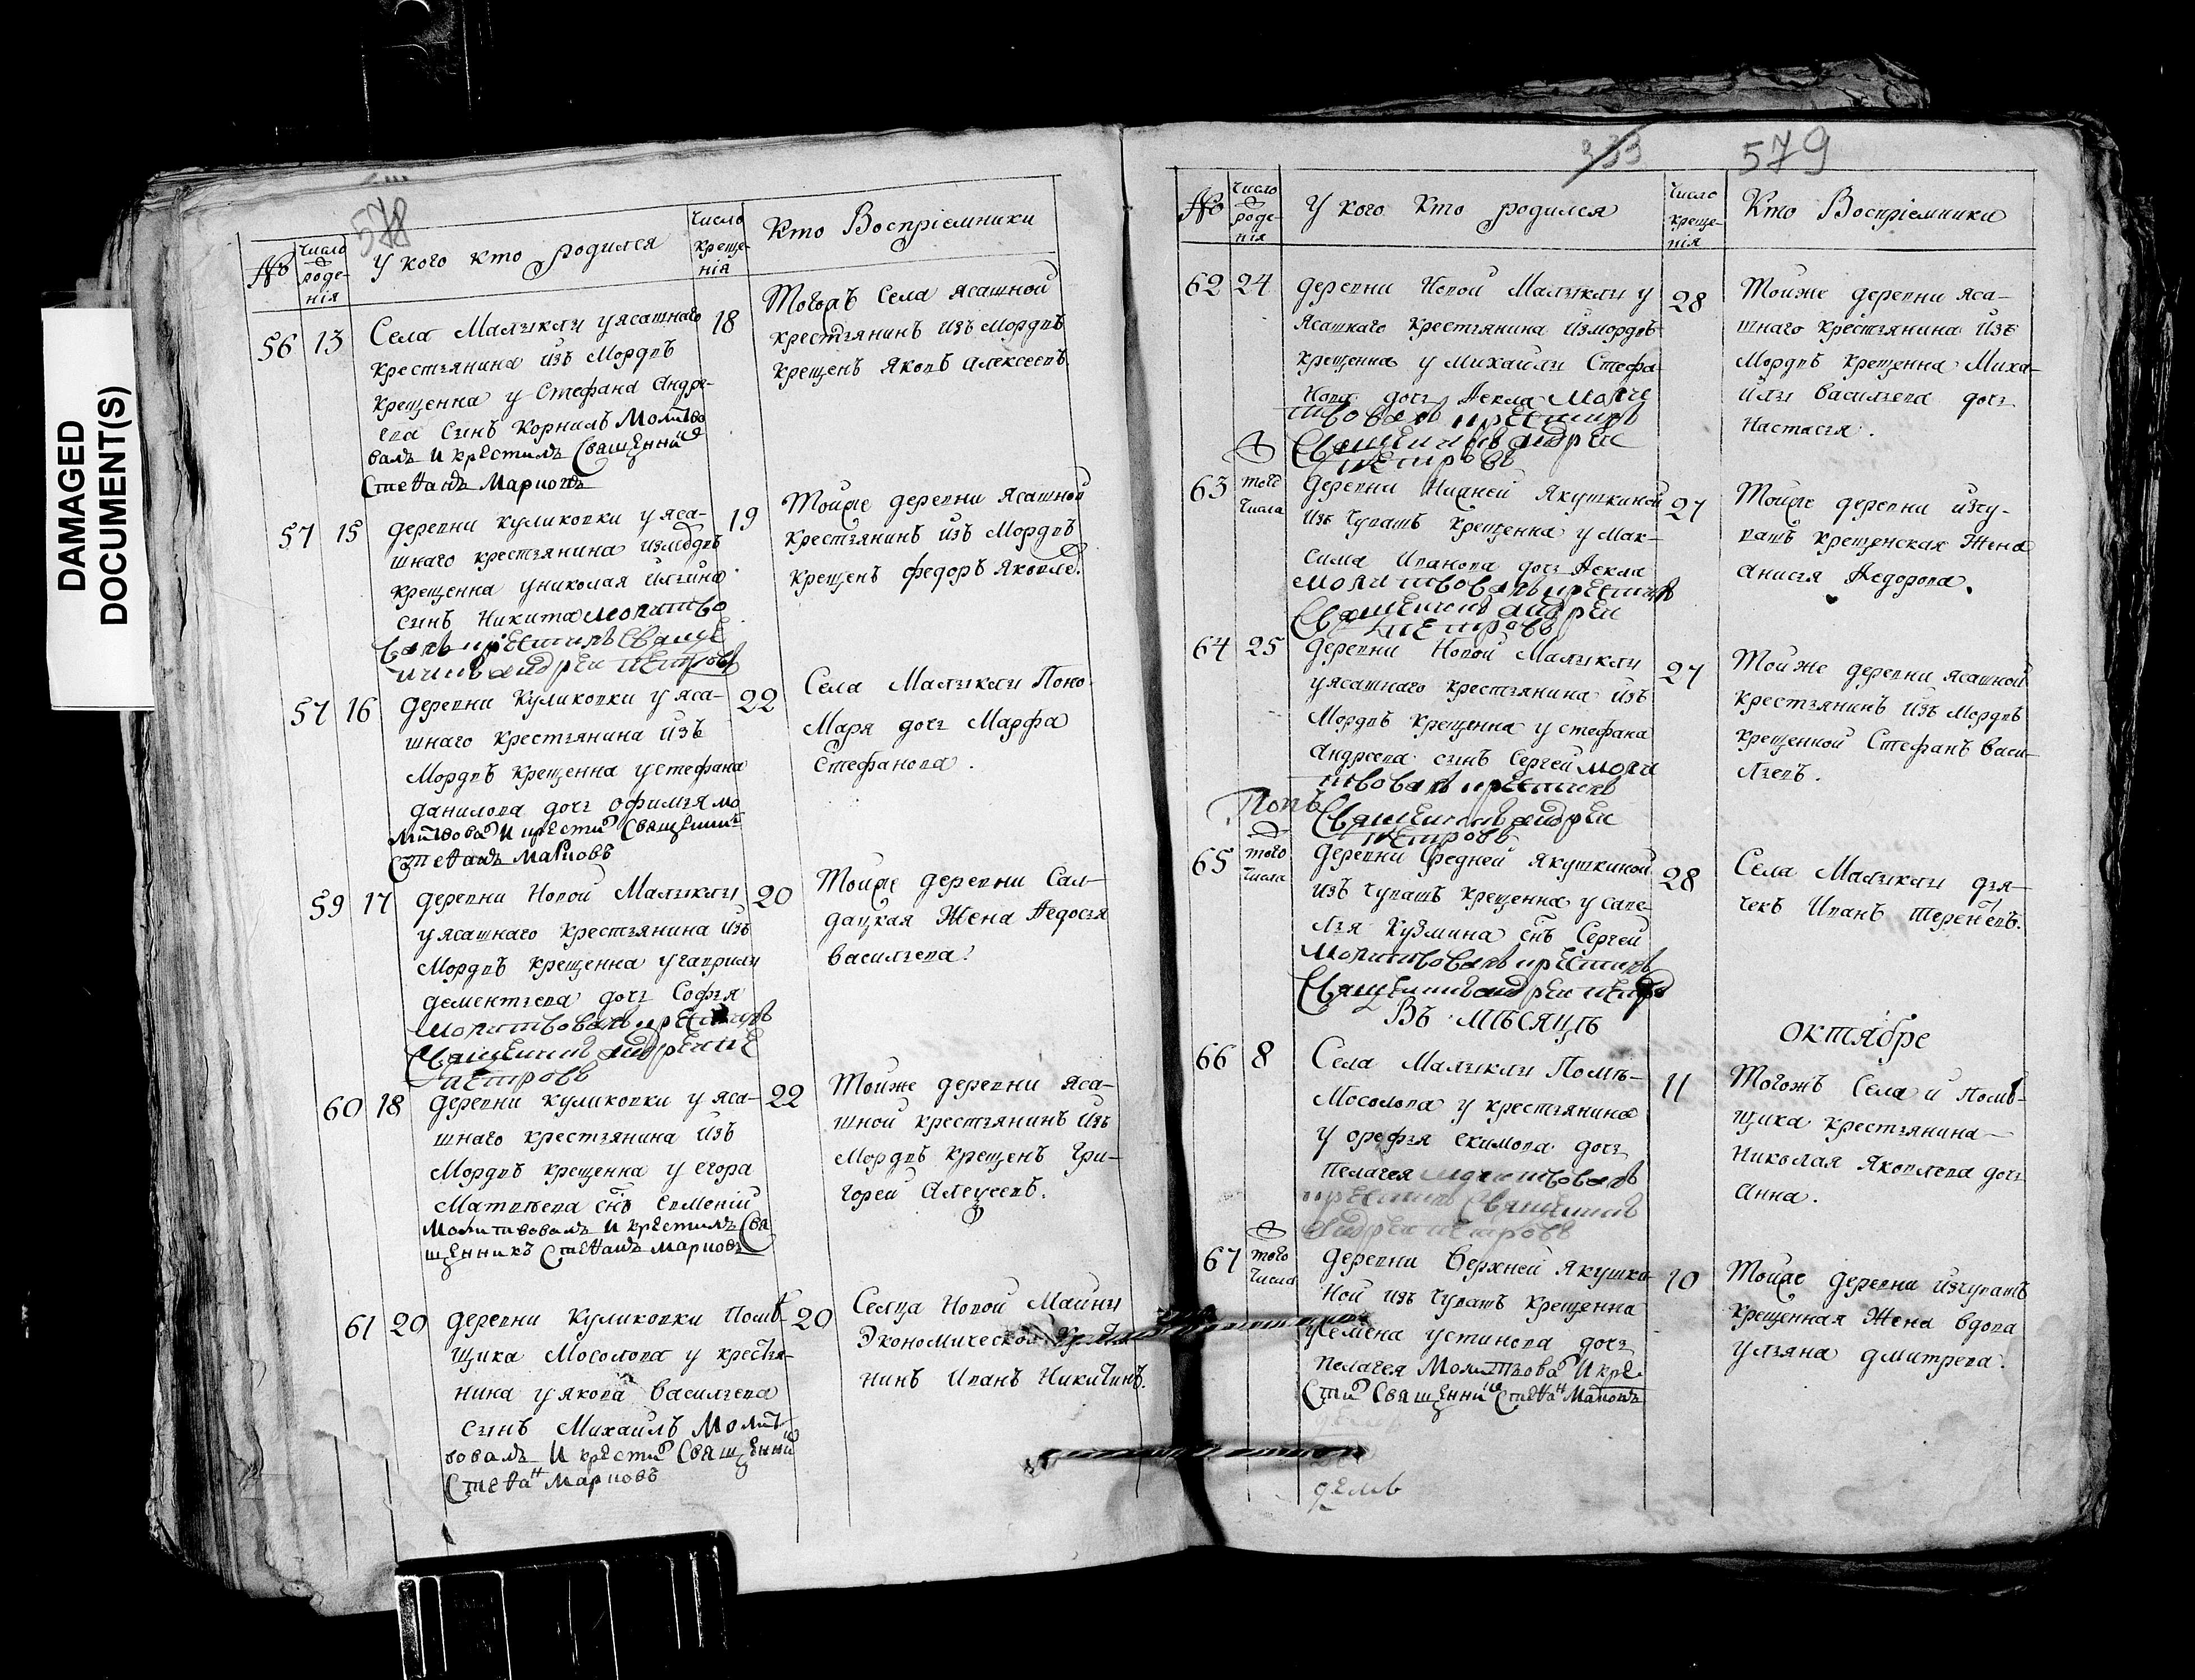 DAMAGED
DOCUMENT(S)
578
№
Число
роде-
нія
У кого кто родился
Число
креще-
нія
Кто Воспріемники
56 13 Села Малыклы у ясашнаго
крестьянина изъ Мордвъ
крещенна у Стефана Андре-
ева сынъ Корнилъ Молитво
валъ и крестилъ Священникъ
Стефанъ Марковъ
18 Тогожъ Села ясашной
крестьянинъ изъ Мордвъ
крещенъ Яковъ Алексеевъ
57 15 деревни Куликовки у яса-
шнаго крестьянина измордвъ
крещенна у николая ильина
сынъ Никита молитво
валъ и крестилъ Свяще
никъ андреи петровъ
19 Тойже деревни Ясашной
крестьянинъ изъ Мордвъ
крещенъ Федоръ Яковле.
57 16 деревни Куликовки у яса-
шнаго крестьянина изъ
Мордвъ крещенна у стефана
данилова дочь офимья мо
литвова и крести Священникъ
Стефанъ Марковъ
22 Села Малыклы Поно-
маря дочь Марфа
Стефанова.
59 17 деревни Новой Малыклы
у ясашнаго крестьянина изъ
Мордвъ крещенна у гаврилы
дементьева дочь Софья
молитвовалъ и крестилъ
Священникъ андреи
петровъ
20 Тойже деревни Сал-
дацкая Жена Ѳедосья
васильева.
60 18 деревни Куликовки у яса-
шнаго крестьянина изъ
Мордвъ крещенна у егора
Матвѣева снъ Еремѣй
Молитвовалъ и крестилъ Свя
щенникъ Стефанъ Марковъ
22 Тойже деревни яса-
шной крестьянинъ изъ
Мордвъ крещенъ Гри-
горей Алексеевъ.
61 20 деревни Куликовки Помѣ-
щика Мосолова у крестья-
нина у якова васильева
сынъ Михаилъ Молит
вовалъ и крести Священни
Стефан Марковъ
20 Сельца Новой Майны
Экономической Крестья
нинъ Иванъ Никитинъ.
339
579
№
Число
роде-
нія
У кого Кто родился
Число
креще-
нія
Кто Воспріемники
62 24 деревни Новой Малыклы у
ясашнаго крестьянина измордвъ
крещенна у Михайлы Стефа-
нова дочь Ѳекла моли
твовалъ и крестилъ
Священникъ андреи
петровъ
28 Тойже деревни яса-
шнаго крестьянина изъ
Мордвъ крещенна Миха-
йлы васильева дочь
Настасья.
63 того
Числа
деревни Нижней Якушкиной
изъ Чувашъ крещенна у Мак-
сима Иванова дочь Ѳекла
молитвовалъ и крестилъ
Священникъ андреи
петровъ
27 Тойже деревни изчу-
вашъ крещенская Жена
Анисья Ѳедорова.
64 25 деревни Новой Малыклы
у ясашнаго крестьянина изъ
Мордвъ крещенна у стефана
андреева сынъ Сергей моли
твовалъ и крестилъ
Попъ
Священникъ андреи
петровъ
27 Тойже деревни ясашной
крестьянинъ изъ Мордвъ
крещенной Стефанъ васи-
льевъ.
65 того
Числа
деревни Средней Якушкиной
изъ Чувашъ крещенна у саве-
лья Кузмина снъ Сергей
молитвовалъ и крестилъ
Священникъ андреи петровъ
28 Села Малыклы дья-
чекъ Иванъ терентевъ.
Въ мѣсяцѣ октябре
66 8 Села Малыклы Помѣ-
Мосолова у крестьянина
у орефья екимова дочь
пелагея молитвовалъ
и крестилъ Священникъ
андреи петровъ
11 Тогожъ Села и Помѣ-
щика крестьянина
Николая Яковлева дочь
Анна.
67 того
Числа
деревни Верхней якушки-
ной изъ Чувашъ крещенна
у семена устинова дочь
пелагея Молитвова и кре
сти Священникъ Стефан Марковъ
10 Тойже деревни изчувашъ
крещенная Жена вдова
Ульяна дмитрева.
демь